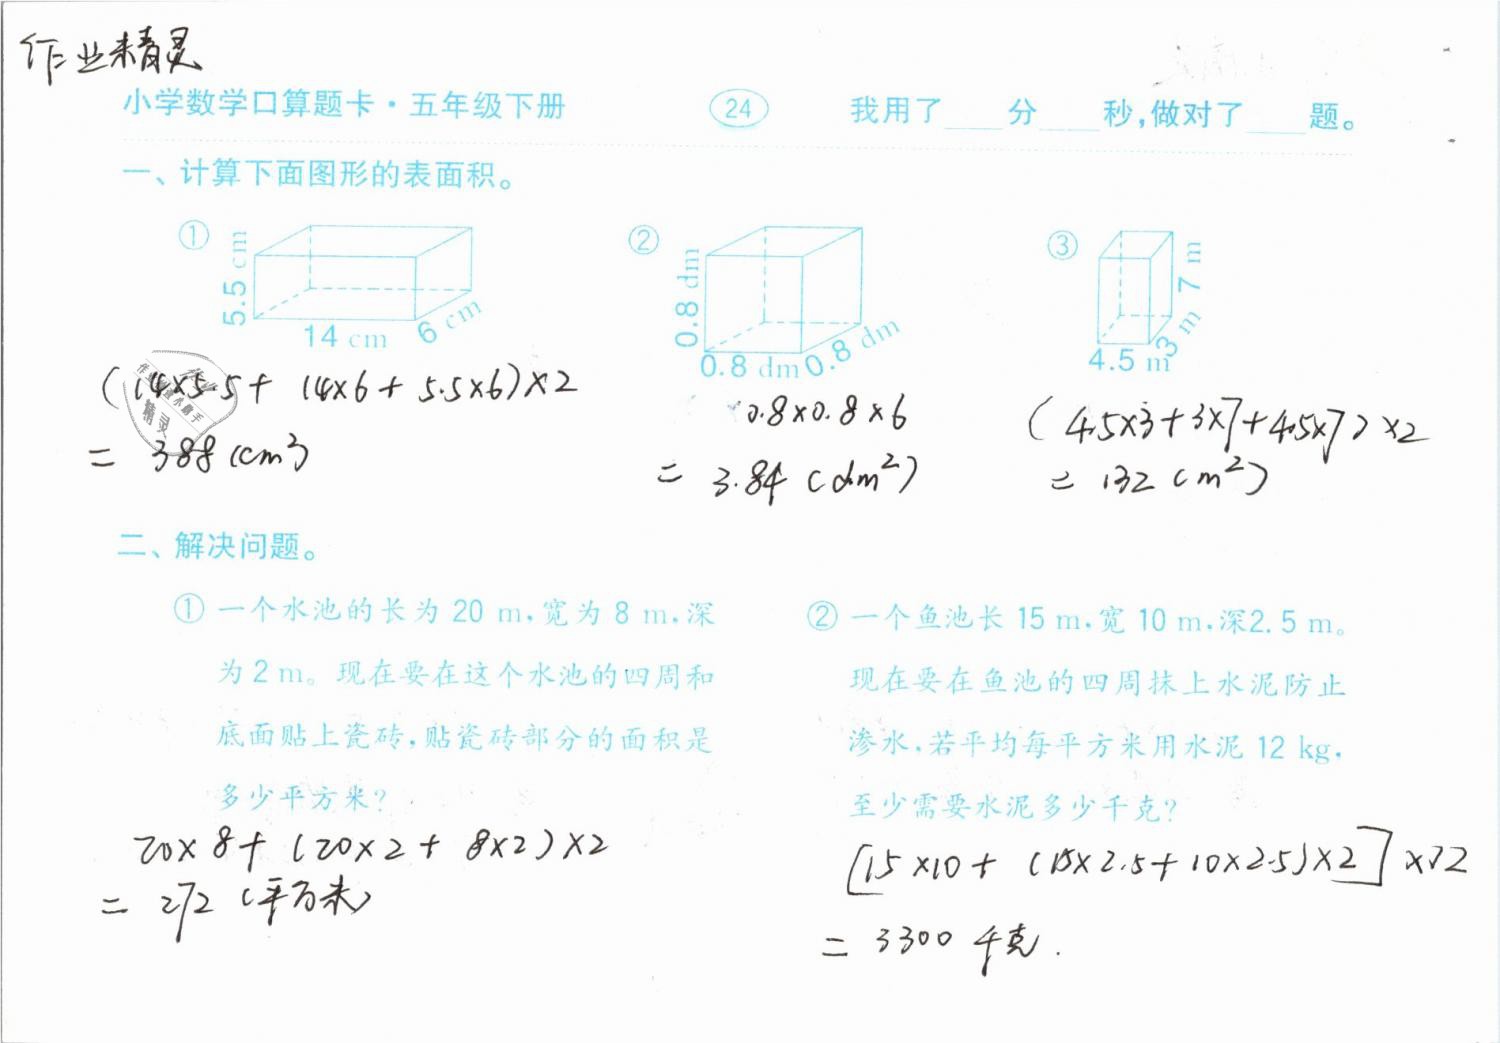 作业精灵
小学数学口算题卡·五年级下册 24 我用了____分____秒,做对了____题。
一、计算下面图形的表面积。
① 5.5 cm 14 cm 6 cm
② 0.8 dm 0.8 dm 0.8 dm
③ 7 m 4.5 m 3 m
(14×5.5+ 14×6+ 5.5×6)×2
= 388 (cm³)
0.8×0.8×6
= 3.84 (dm²)
(4.5×3+3×7+4.5×7)×2
= 132 (m²)
二、解决问题。
① 一个水池的长为 20 m,宽为 8 m,深
为 2 m。现在要在这个水池的四周和
底面贴上瓷砖,贴瓷砖部分的面积是
多少平方米?
20×8+(20×2+ 8×2)×2
= 272 (平方米)
② 一个鱼池长 15 m,宽 10 m,深2.5 m。
现在要在鱼池的四周抹上水泥防止
渗水,若平均每平方米用水泥 12 kg,
至少需要水泥多少千克?
[15×10+ (15×2.5+10×2.5)×2]×12
= 3300 千克.